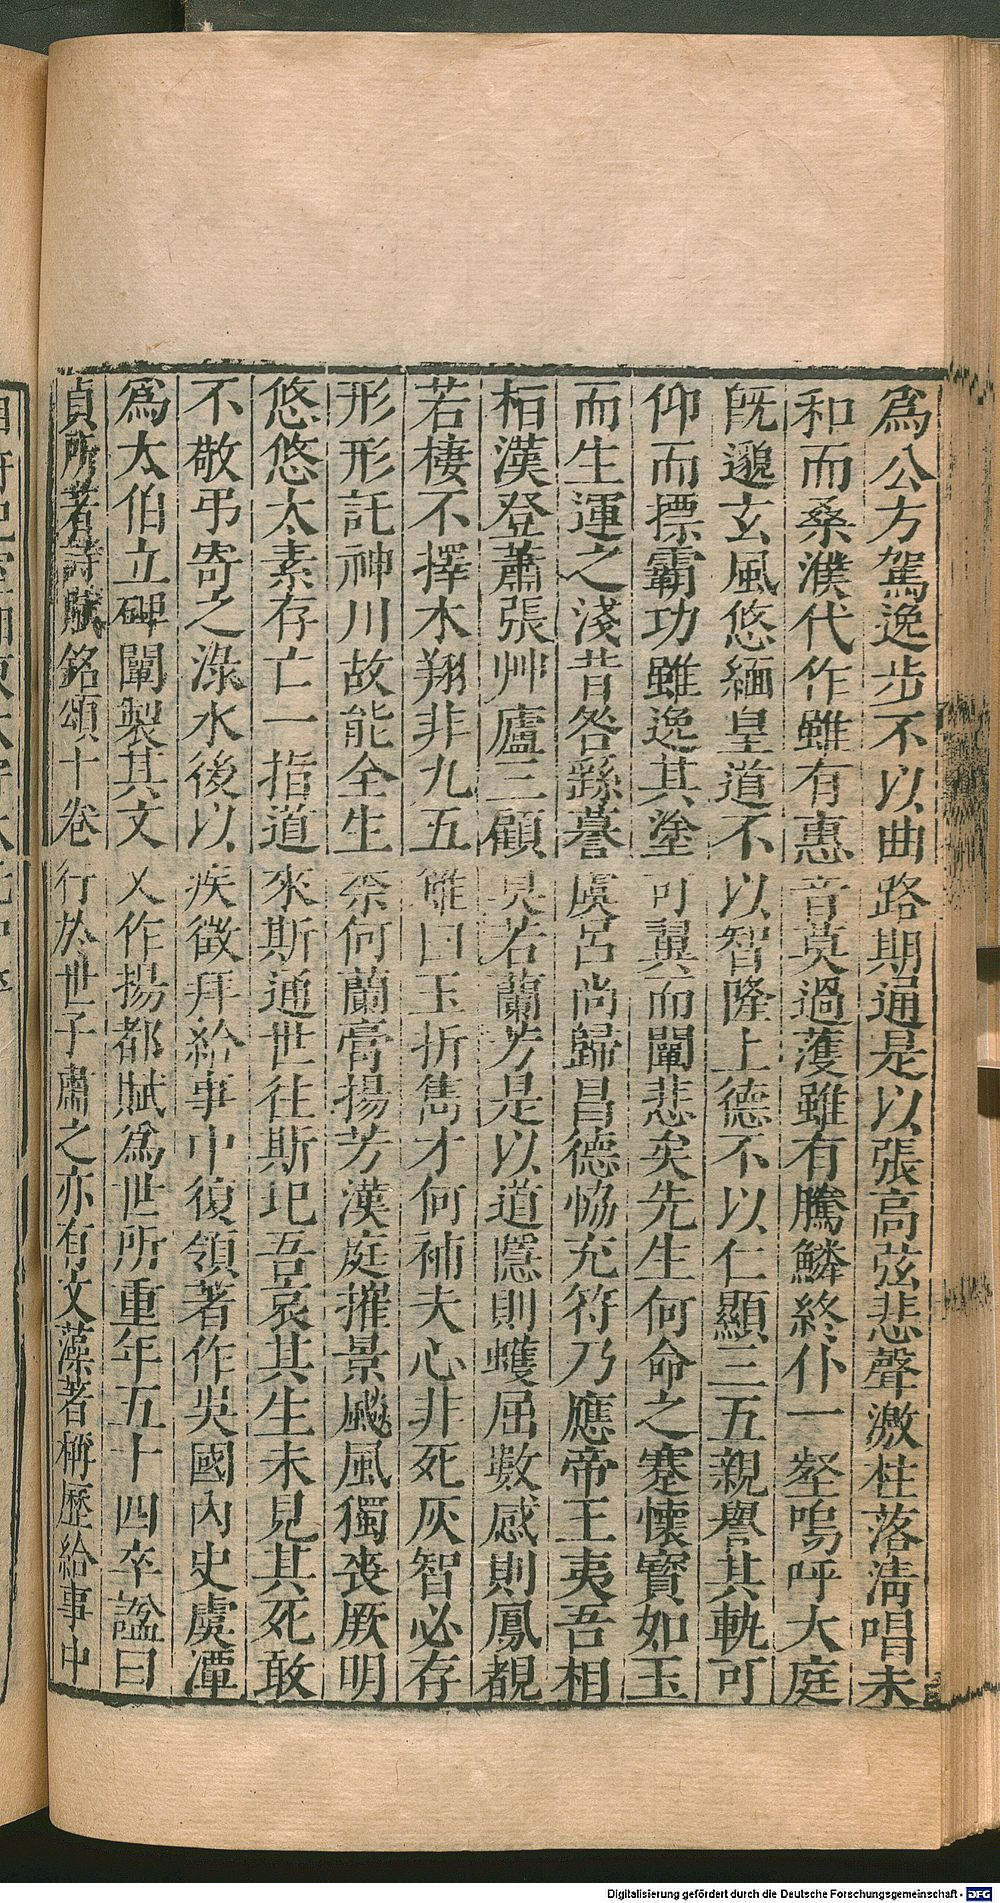 爲公方駕逸步不以曲路期通是以張高弦悲聲激柱落淸唱未
和而桑濮代作雖有惠音莫過濩雖有騰鱗終仆一壑嗚呼大庭
旣邈玄風悠緬皇道不以智隆上德不以仁顯三五親譽其軌可
仰而摽霸功雖逸其塗可翼而闡悲矣先生何命之蹇懷寶如玉
而生運之淺昔咎繇謩虞呂尚歸昌德恊充符乃應帝王夷吾相
栢漢登蕭張艸廬三顧臭若蘭芳是以道隱則蠖屈數感則鳳覩
若棲不擇木翔非九五雖曰玉折雋才何補夫心非死灰智必存
形形託神川故能全生奈何蘭膏揚芳漢庭摧景飈風獨喪厥明
悠悠太素存亡一指道來斯通世往斯圯吾哀其生未見其死敢
不敬弔寄之淥水後以疾徵拜給事中復領著作吳國內史虞潭
爲太伯立碑闡製其文又作揚都賦爲世所重年五十四卒諡曰
貞所著詩賦銘頌十卷行於世子肅之亦有文藻著稱歷給事中
Digitalisierung gefördert durch die Deutsche Forschungsgemeinschaft - DFG